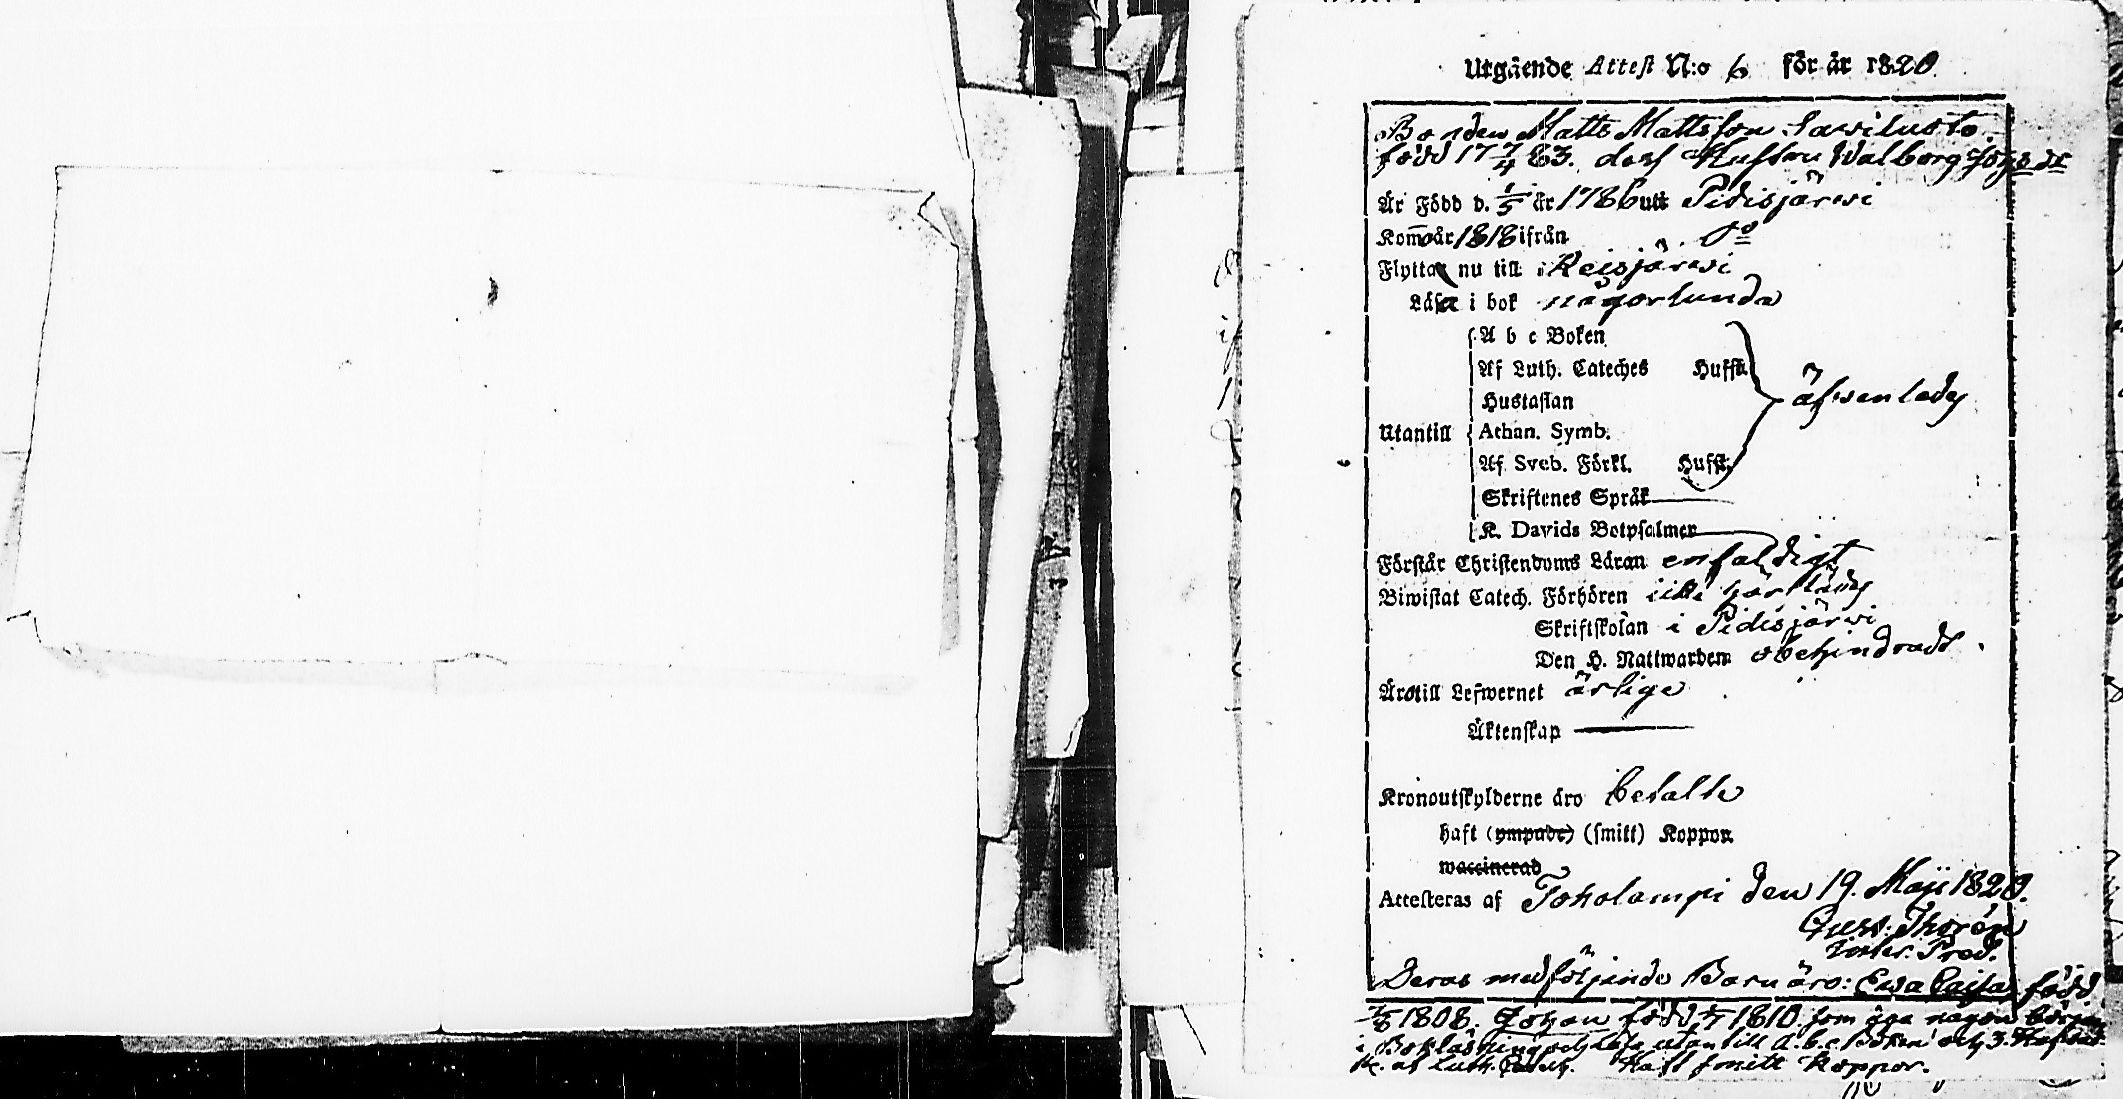 Utgående Attest N:o 6 för år 1820.
Bonden Matts Mattsson Sawilusto.
född 17 7/4 83. dess Hustru Walborg Johs dr
Är Född d. 1/5 år 1786 utt Pidisjärwi
Kom år 1818 ifrån do
Flytta nu till Reisjärwi
Läsa i bok någorlunda
A b c Boken
Af Luth. Cateches Hufst.
Hustaflan
Utantill Athan. Symb. äfwenledes
Af Sveb. Förkl. Hufst.
Skriftenes Språk
K. Davids Botpsalmer
Förstår Christendoms Läran enfaldigt
Biwistat Catech. Förhören
Skriftskolan i Pidisjärwi
Den H. Nattwarden obehindrade.
Äro till Lefwernet ärlige
Äktenskap
Kronoutskylderne äro betalte
haft (ympade) (smitt) Koppor
waccinerad
Attesteras af Toholampi den 19. Maji 1820.
Gust. Thorén
Pred.
Deras medföljande Barn äro: Ewa Caisa född
1808. Johan född 1810 som äga någon början
i Bokläsning och läsa utan till A.b.c. Boken och 3. Hufwud
St. af Luth. Catech. Haft smitt Koppor.